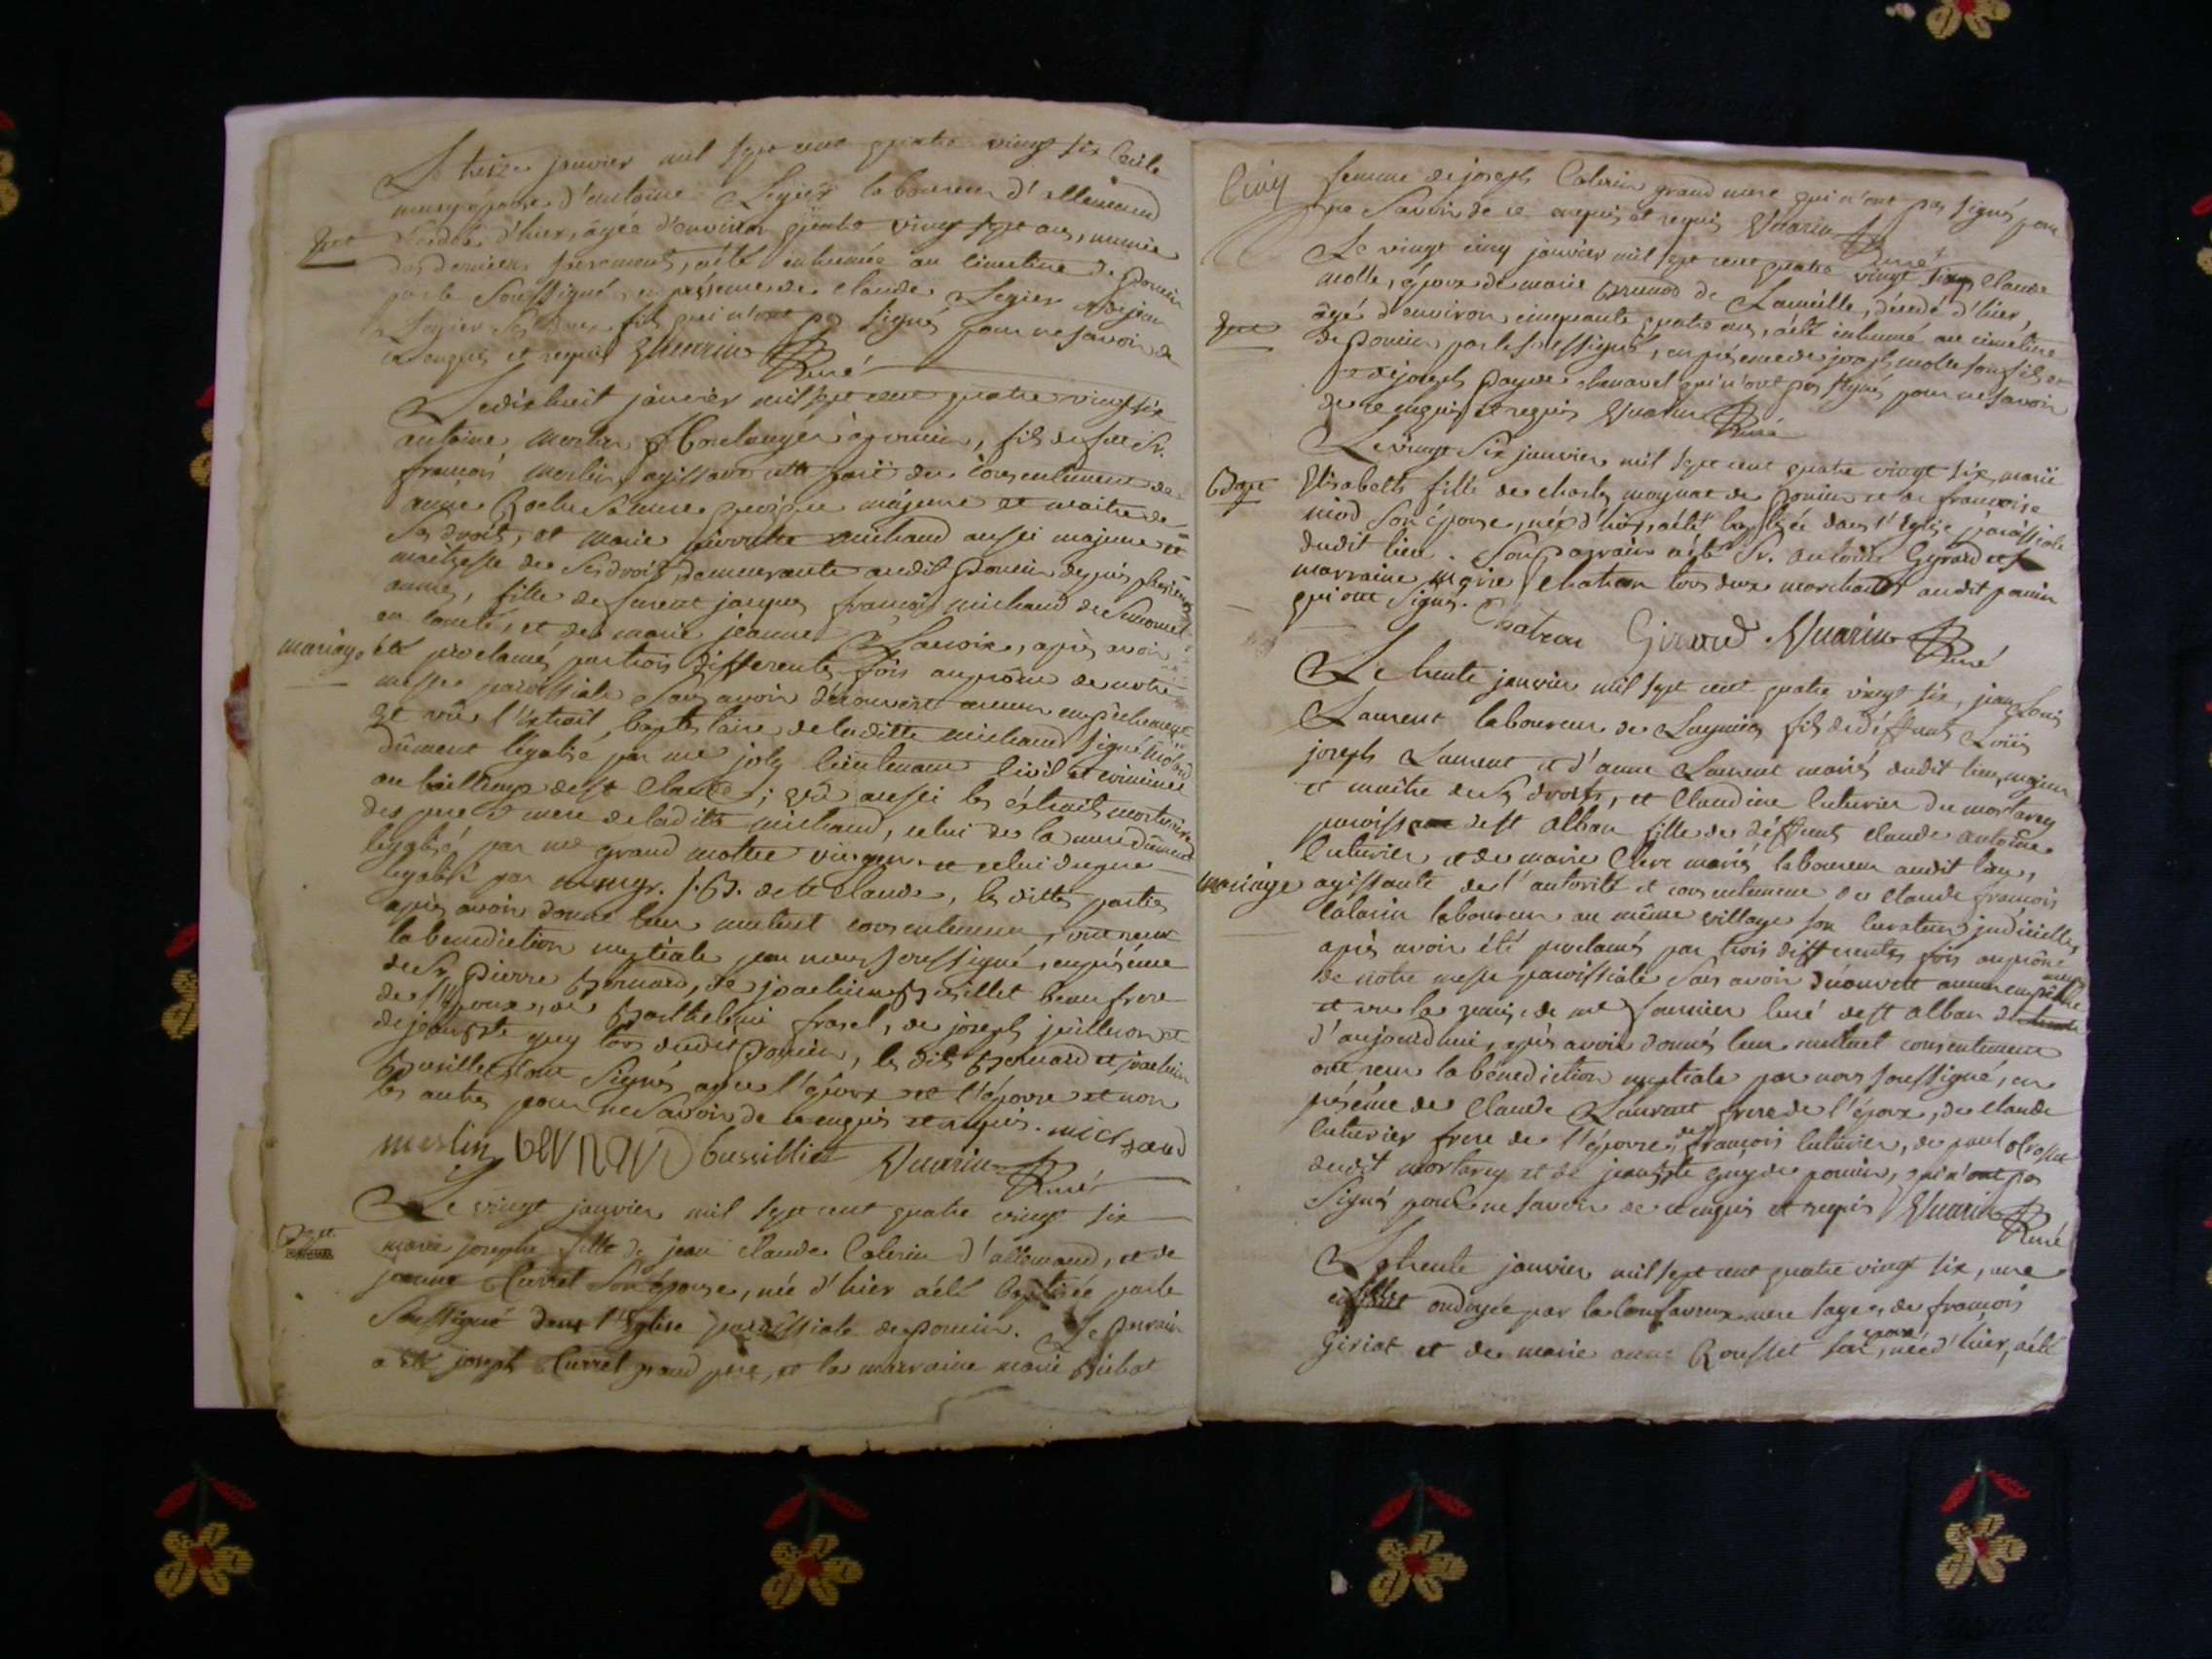 Le treize janvier mil sept cent quatre vingt six Cécile
épouse d'antoine Legier laboureur d'allemend
décédée d'hier, agée d'environ quatre vingt sept ans, munie
des derniers sacremens, a été inhumée au cimetiere de poncin
par le soussigné en présence de claude Legier et de jean
Legier ses deux fils qui n'ont pas signés pour ne savoir de
ce enquis et requis Vuarin
Curé
Le dixhuit janvier mil sept cent quatre vingt six
antoine merlin Boulanger à poncin, fils de feu Sr.
françois merlin, agissant du consentement de
anne Roche sa mere quoique majeure et maitre de
ses droits, et marie michaud aussi majeure et
maitresse de ses droits demeurante audit poncin depuis plusieurs
années, fille de furent jacques françois michaud de
en comté, et de marie jeanne Lacroix, après avoir
mariage
été proclamés par trois differentes fois au prône de notre
messe paroissiale sans avoir découvert aucun empêchement
et vû l'extrait baptistaire de laditte michaud signé
dûment légalisé par me joly lieutenant civil et criminel
au bailliage de st claude; vû aussi les extraits mortuaires
des pere et mere de laditte michaud, celui de la mere dûment
légalisé par me grand mottet et celui du pere
légalisé par mgr. de st claude, les dittes parties
après avoir donné leur mutuel consentement, ont reçu
la bénédiction nuptiale par nous soussigné, en présence
de Sr. pierre Bernard, de joachim Bussillet beaufrere
de l'époux, de Barthelemi frasel, de joseph juilleron et
de jean Bte guy tous dudit poncin, les dits Bernard et joachim
Bussillet ont signés avec l'époux et l'épouse et non
les autres pour ne savoir de ce enquis et requis. michaud
merlin bernard bussilliet Vuarin
Curé
Le vingt janvier mil sept cent quatre vingt six
Bapt.
marie josephe fille de jean claude Calerin d'allemend, et de
jeanne Curret son épouse, née d'hier a été baptisée par le
soussigné dans l'Eglise paroissiale de poncin. Le parrain
a été joseph Curret grand pere, et la marraine marie
Cinq
femme de joseph Calerin grand mere qui n'ont pas signés pour
ne savoir de ce enquis et requis Vuarin
Curé
Le vingt cinq janvier mil sept cent quatre vingt six, claude
molle, époux de marie Brunod de Lameille, décédé d'hier,
agé d'environ cinquante quatre ans, a été inhumé au cimetiere
de poncin par le soussigné, en présence de joseph molle son fils et
de joseph qui n'ont pas signés pour ne savoir
de ce enquis et requis Vuarin
Curé
Le vingt six janvier mil sept cent quatre vingt six, marie
Bapt
Elisabeth fille de charles moynat de poncin et de françoise
niod son épouse, née d'hier, a été baptisée dans l'Eglise paroissiale
dudit lieu. Son parrain a été Sr. antoine Girard et sa
marraine marie Chatran tous deux marchands audit poncin
qui ont signés.
Chatran Giraud Vuarin
Curé
Le trente janvier mil sept cent quatre vingt six, jean Louis
Laurent laboureur de fils de déffunts Louis
joseph Laurent et d'anne Laurent mariés dudit lieu, majeur
et maître de ses droits, et Claudine Cuturier du mortarey
paroisse de st alban fille de déffunts claude antoine
Cuturier et de marie Clerc mariés laboureur audit lieu,
mariage
agissante de l'autorité et consentement de claude françois
Calarin laboureur au même village son curateur judicielle,
après avoir été proclamés par trois differentes fois au prône
de notre messe paroissiale sans avoir découvert aucun empêchement
et vu la remise de me fournier curé de st alban
d'aujourd'hui, après avoir donnés leur mutuel consentement
ont reçu la bénédiction nuptiale par nous soussigné, en
présence de claude Laurent frere de l'époux, de claude
Cuturier frere de l'épouse, de françois Cuturier, de paul
dudit mortarey et de jean Bte guy de poncin, qui n'ont pas
signés pour ne savoir de ce enquis et requis Vuarin
Curé
Le trente janvier mil sept cent quatre vingt six, une
fille ondoyée par la mere sage, de françois
Giriat et de marie anne Rousset son épouse, née d'hier, a été